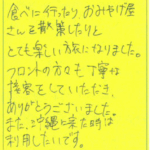 食べに行ったり、おみやげ屋
さんを散策したりと
とても楽しい旅になりました。
フロントの方々も丁寧な
接客をしていただき、
ありがとうございました。
また、沖縄に来た時は
利用したいです。